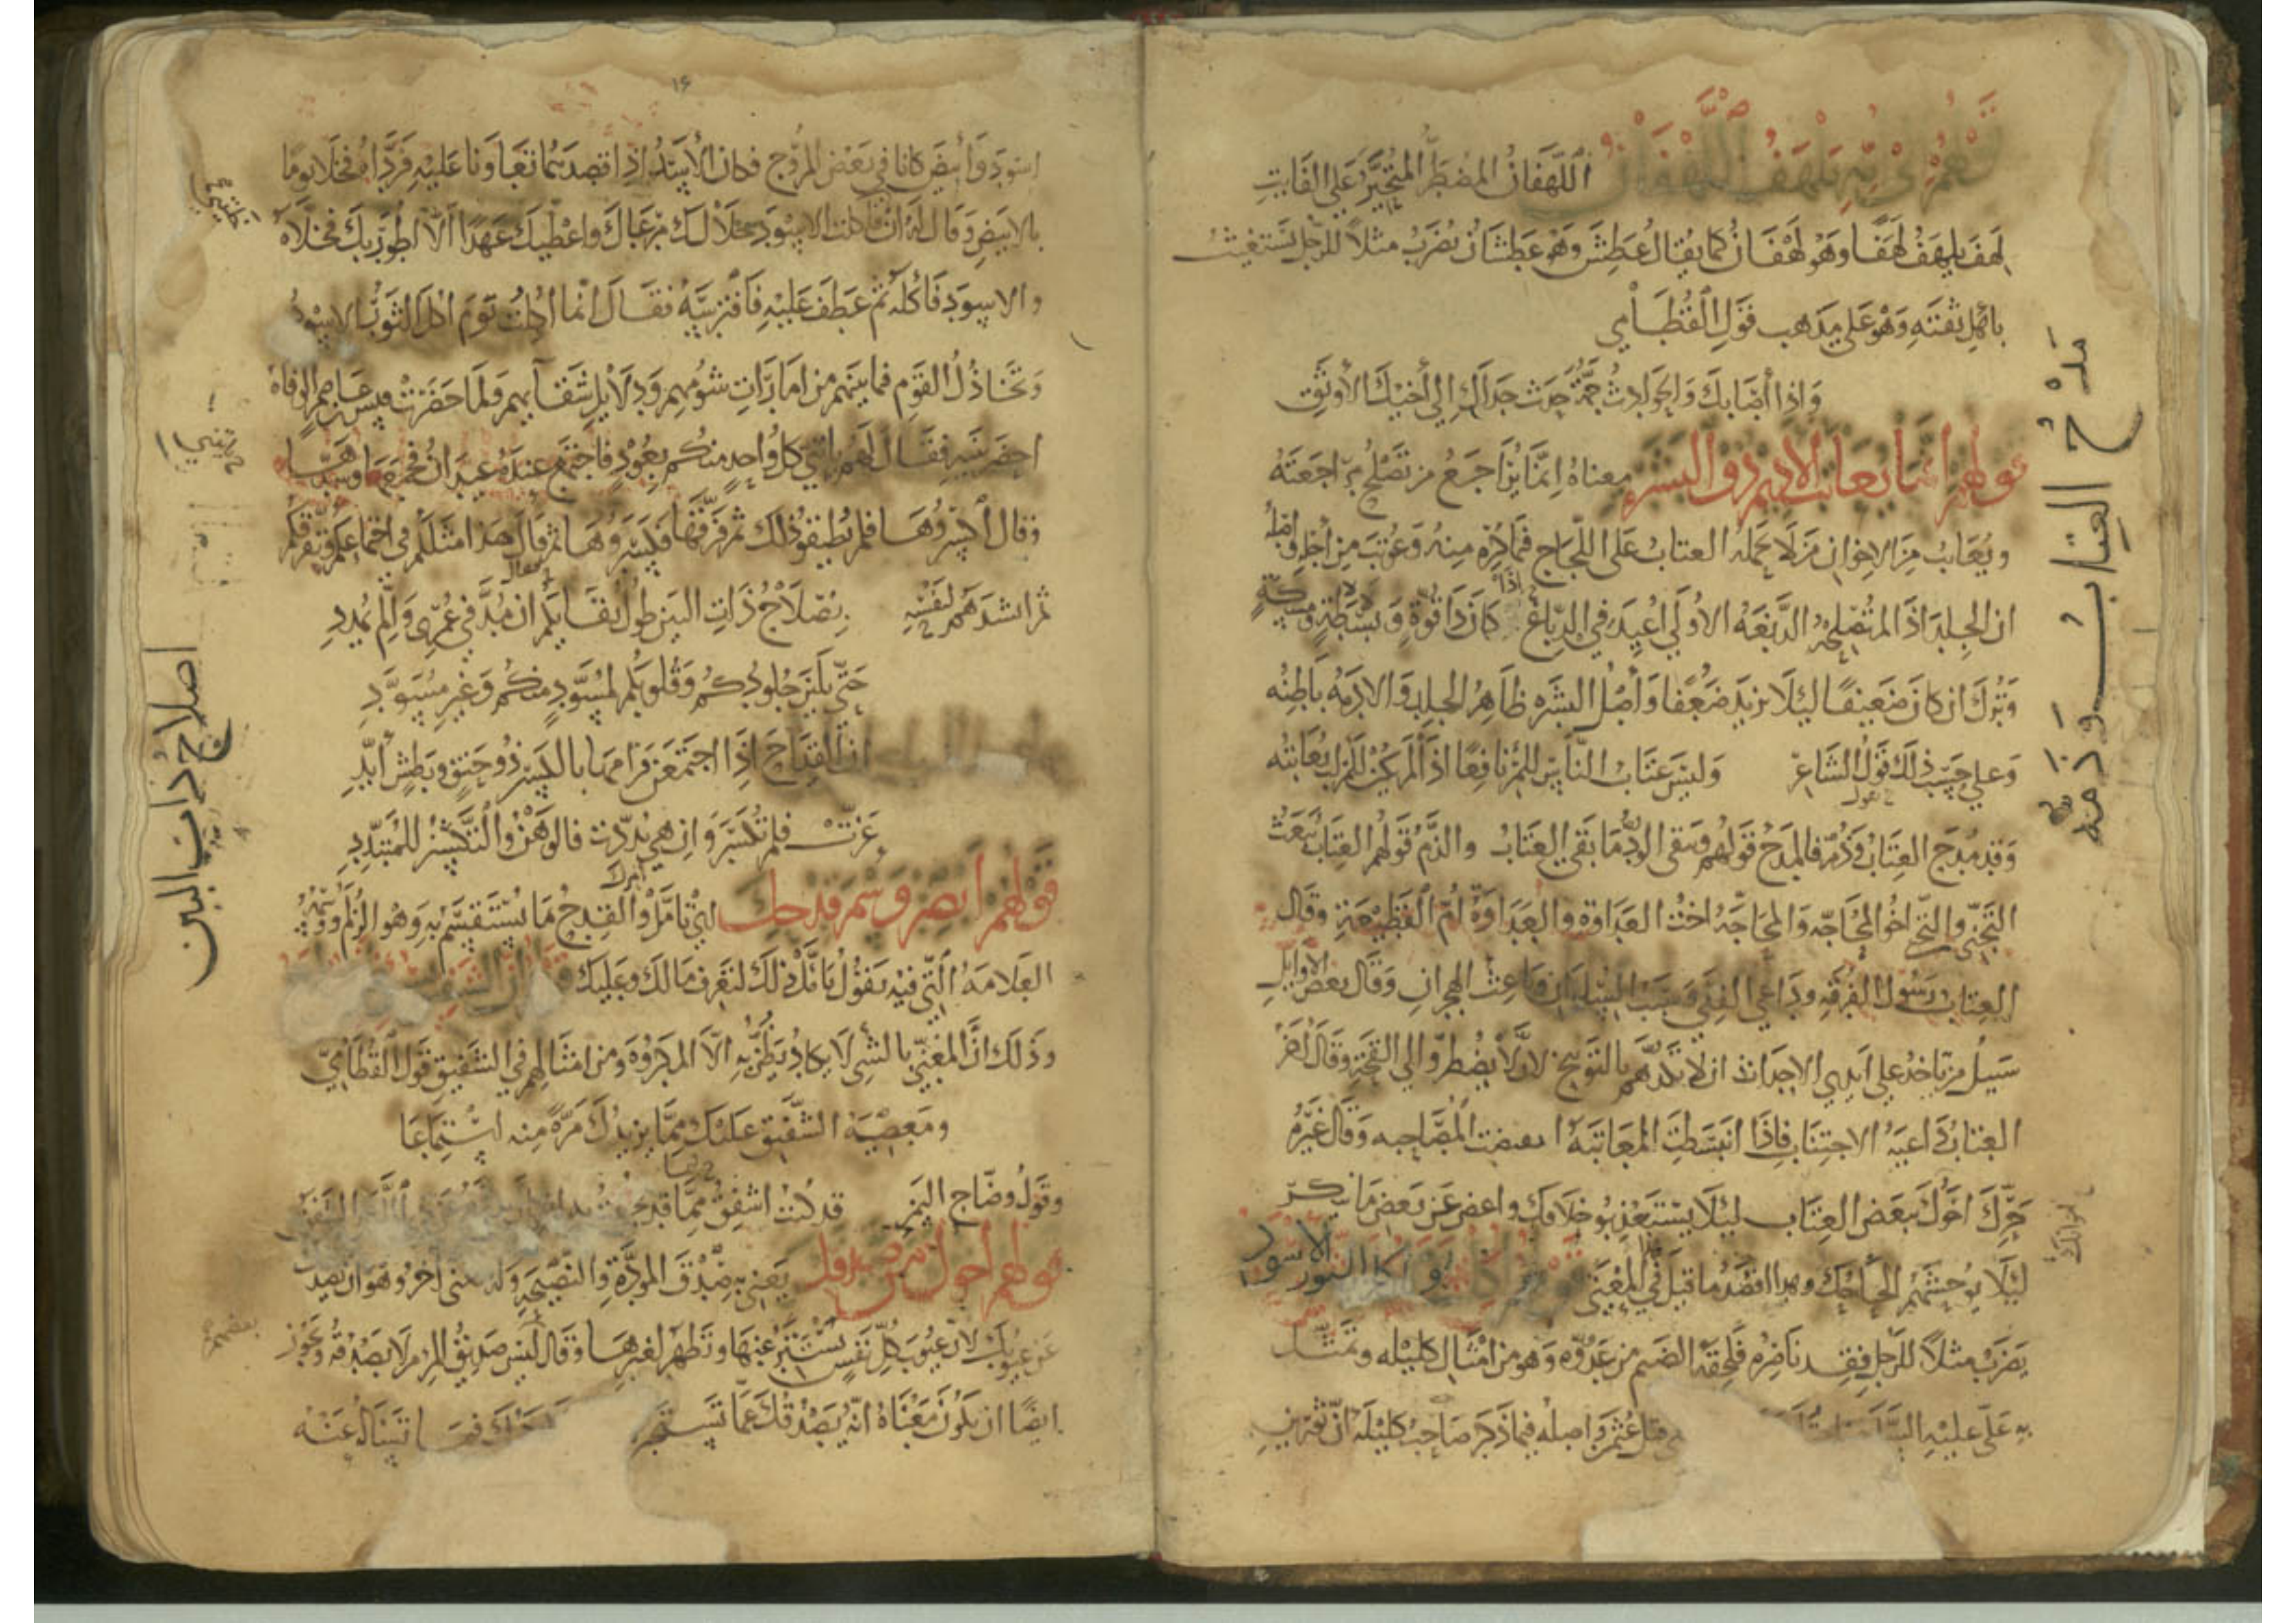 يلهف اللهفان اللهفان المضطر المتحير على الفايت
لهف يلهف لهفا وهو لهفان كما يقال عطش وهو عطشان يضرب مثلا للرجل يستغيث
باهل ثقته وهو على مذهب قول القطامي
واذا أصابك والحوادث جمة حدث حداك الى أخيك الأوثق
قولهم انما يعاتب الاديم ذو البشرة معناه إنما يراجع من تصلح مراجعته
ويعاتب من الاخوان من لا يحمله العتاب على اللجاج فيما كره منه وعوتب من أجله واصله
ان الجلد اذا لم تصلحه الدبغة الاولى اعيد في الدباغ اذا كان ذا قوة وبسطة ومسكة
وترك ان كان ضعيفا ليلا يزيد ضعفا وأصل البشره ظاهر الجلد والادمه باطنه
وعلى حسب ذلك قول الشاعر وليس عتاب الناس للمرء نافعا اذا لم يكن للمرء لب يعاتبه
وقد مدح العتاب وذم فالمدح قولهم ويبقى الود ما بقي العتاب والذم قولهم العتاب يبعث
التجني والتجني اخو المحاجه والمحاجه اخت العداوة والعداوة أم القطيعة وقال
العتاب رسول الفرقه وداعي القلى وسبب السلوان وباعث الهجران وقال بعض الاوايل
سبيل من ياخذ على ايدي الاحداث ان لا يكدهم بالتوبيخ لان لا يضطروا الى القحة وقال اخر
العتاب داعية الاجتناب فاذا انبسطت المعاتبة انقبضت المصاحبه وقال غيره
حرك اخوك ببعض العتاب ليلا يستعذبو خلافك واعض عن بعض ما تنكر
ليلا يوحشهم الحاحك وهذا اقصد ما قيل في المعنى الثور الاسود
يضرب مثلا للرجل فقد ناصره فلحقه الضيم من عدوه وهو من امثال كليله وتمثل
به علي عليه قتل عثمن واصله فيما ذكر صاحب كليلة ان ثورين
مدح العتاب وذمه
١٦
اسود وأبيض كانا في بعض المروج فكان الأسد اذا قصدهما تعاونا عليه فرداه فخلا يوما
بالابيض وقال له ان اكلت الاسود خلا لك مرعاك واعطيك عهدا ألا اطور بك فخلاه
والاسود فأكله ثم عطف عليه فافترسه فقال انما اكلت يوم اكل الثور الاسود
وتخاذل القوم فيما بينهم من امارات شومهم ودلايل شقايهم ولما حضرت قيس بن عاصم الوفاة
احضر بنيه فقال لهم ياتي كل واحد منكم بعود فاجتمع عنده عيدان فجمعها وشدها
وقال اكسروها فلم يطيقو ذلك ثم فرقها فكسروها ثم قال هذا مثلكم في اجتماعكم وتفرقكم
ثم انشدهم لنفسه بصلاح ذات البين طول بقايكم ان مد في عمري وان لم يمدد
حتى تلين جلودكم وقلوبكم لمسود منكم وغير مسود
ان القداح اذا اجتمعن فرامها بالكسر ذو حنق وبطش أيد
عزت فلم تكسر وان هي بددت فالوهن والتكسير للمتبدد
قولهم أبصر وسم قدحك اي تامل والقدح ما يستقسم به وهو الزلم ووسمه
العلامة التي فيه يقول تأمل ذلك لتعرف مالك وعليك
وذلك ان المعني بالشي لا يكاد يظن به الا المكروه ومن امثالهم في الشفيق قول القطامي
ومعصية الشفيق عليك مما يزيدك مرة منه استماعا
وقول وضاح اليمن قد كنت اشفق مما قد
قولهم أخوك من صدقك يعني به صدق المودة والنصيحة وله معنى اخر وهو ان يصدقك
عن عيوبك لان عيوب كل نفس تستتر عنها وتظهر لغيرها وقال ليس صديق المرء من لا يصدقه ويجوز
ايضا ان يكون معناه انه يصدقك عما تستخبره تساله عنه
اصلاح ذات البين